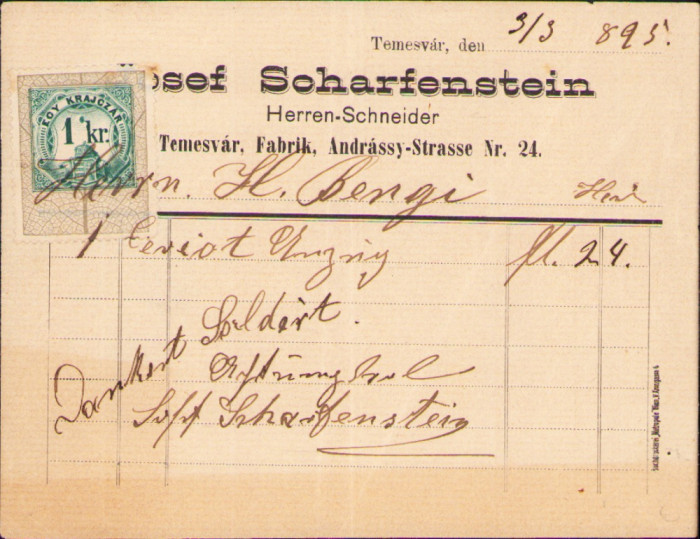 Temesvár, den 3/3 895.
Josef Scharfenstein
Herren-Schneider
Temesvár, Fabrik, Andrássy-Strasse Nr. 24.
EGY KRAJCZÁR
1 kr.
Herrn. H. Bengi Hier
1 Ceviot Anzug fl. 24.
Saldirt.
Dankent
Achtungsvol
Josef Scharfenstein